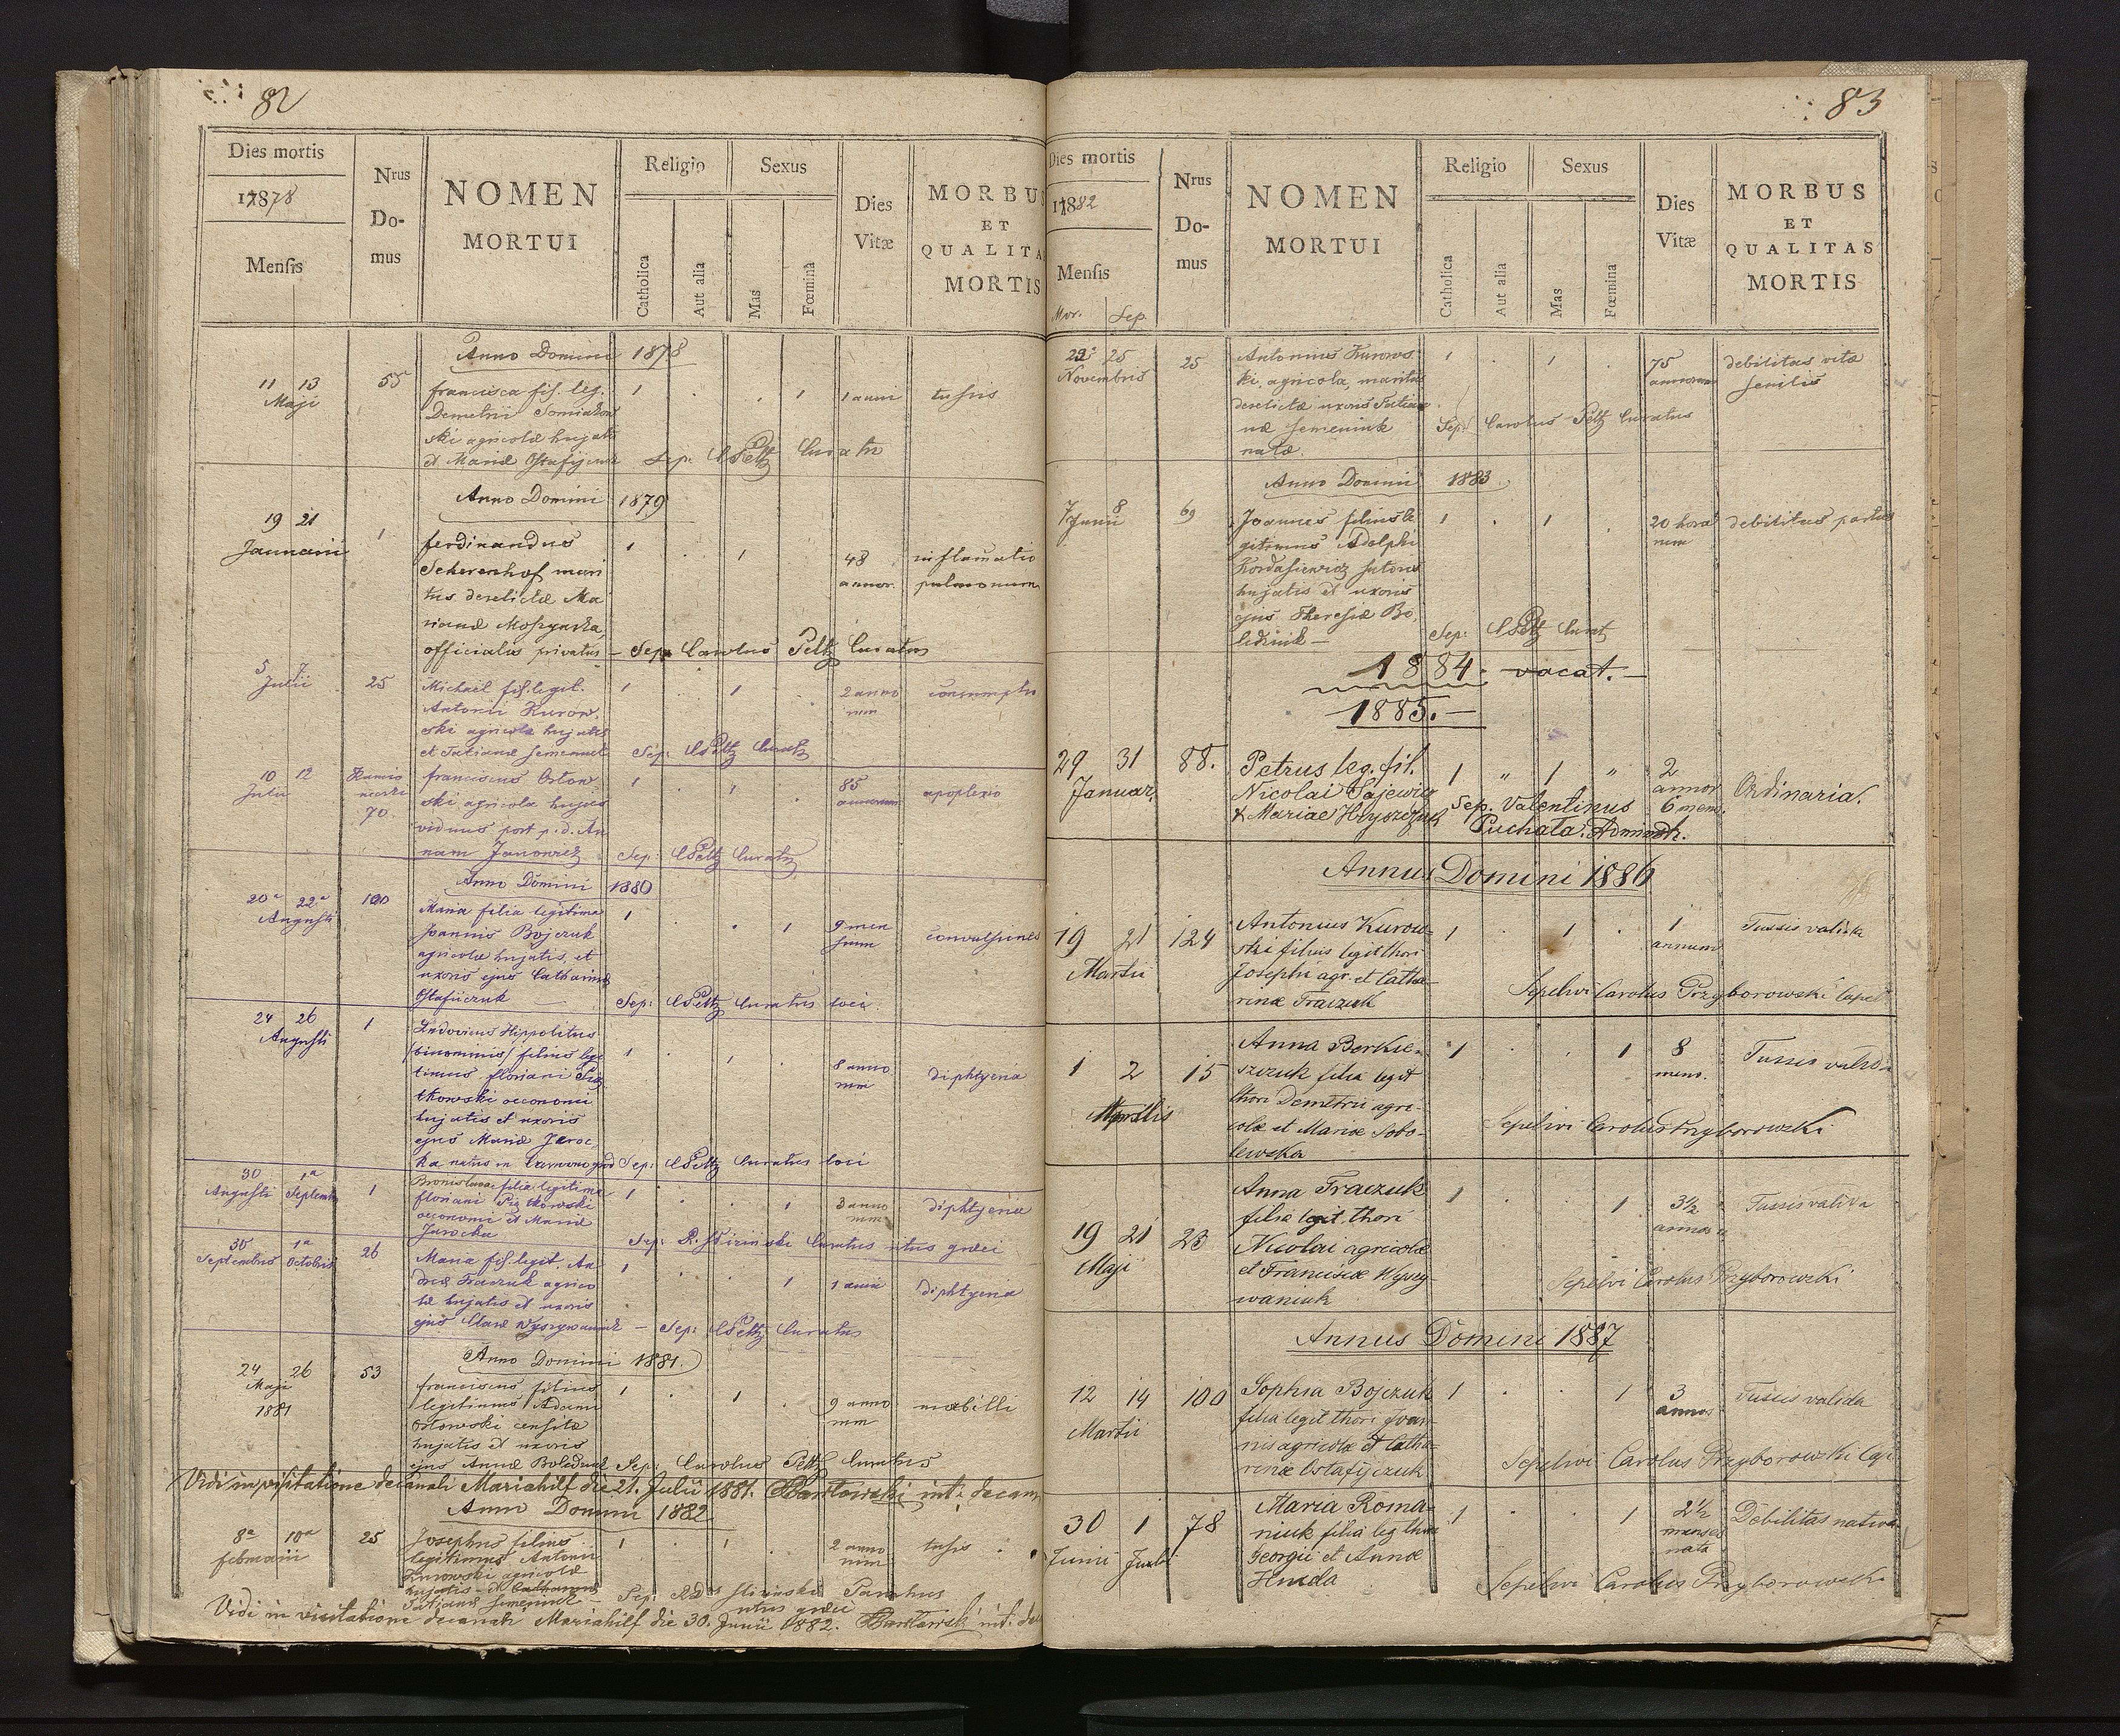 82
Dies mortis
1878
Mensis
Nrus
Do-
mus
NOMEN
MORTUI
Religio
Catholica
Aut alia
Sexus
Mas
Fœmina
Dies
Vitæ
MORBU
ET
QUALITA
MORTIS
Anno Domini 1878
11 13
Maji
55
francisca fil. leg.
Demetrii
ski agricolæ hujatis
et Mariæ
1 . . 1
1 anni
tussis
Sep: CPeltz Curatus
Anno Domini 1879
19 21
Januarii
1
ferdinandus
Scherenhof mari
tus derelictæ Ma
rianæ
officialis privatus
1 . 1
48
annor.
inflamatio
pulmonum
Sep. Carolus Peltz Curatus
5 7
Julii
25
Michael fil. legit.
Antonii Kurow-
ski agricolæ hujatis
et Tatianæ Semeniuk
1 . 1 .
2 anno
rum
consumptio
Sep: CPeltz Curatus
10 12
Julii
70.
franciscus Ortow
ski agricola hujas
viduus post p. d. An
nam Janowicz
1 . 1 .
85
annorum
apoplexio
Sep: CPeltz Curatus
Anno Domini 1880
20ª 22ª
Augusti
100
Maria filia legitima
Joannis Bojczuk
agricolæ hujatis, et
uxoris ejus Catharinæ
Ostafiiczuk
1 . . 1
9 men
sium
convulsiones
Sep: CPeltz Curatus loci.
24 26
Augusti
1
Ludovicus Hippolitus
/binominis/ filius legi
timus floriani Pią
tkowski oeconomi
hujatis et uxoris
ejus Mariæ Jaroc
ka natus in
1 . 1 .
8 anno
rum
diphtyeria
Sep: CPeltz Curatus loci
30 1ª
Augusti Septembris
1
Bronislava filia legitima
floriani Piątkowski
oeconomi et Mariæ
Jarocka
1 . . 1
3 anno
rum
diphtyeria
Sep: R. Curatus ritus græci
30 1ª
Septembris Octobris
26
Maria fil. legit. An
dreæ Fraczuk agrico
læ hujatis et uxoris
ejus Claræ Wyszywaniuk
1 . . 1
1 anni
diphtyeria
Sep: CPeltz Curatus
Anno Domini 1881.
24 26
Maji
1881
53
franciscus filius
legitimus Adami
Ortowski
hujatis et uxoris
ejus Annæ Boledziuk
1 . 1 .
9 anno
rum
morbilli
Sep: Carolus Peltz Curatus
Vidi in visitatione decanali Mariahilf die 21. Julii 1881. int. decan
Anno Domini 1882
8ª 10ª
februarii
25
Josephus filius
legitimus Antonii
Kurowski agricolæ
hujatis et Catharinæ
Tatianæ Semeniuk
1 . 1 .
2 anno
rum
tusis
Sep: Parochus
ritus græci
Vidi in visitatione decanali Mariahilf die 30. Junii 1882. int. de
83
Dies mortis
1882
Mensis
Mor. Sep.
Nrus
Do-
mus
NOMEN
MORTUI
Religio
Catholica
Aut alia
Sexus
Mas
Fœmina
Dies
Vitæ
MORBUS
ET
QUALITAS
MORTIS
22ª 25
Novembris
25
Antonius Kurows-
ki, agricola, maritus
derelictæ uxoris Tatia
næ Semeniuk
natæ.
1 . 1 .
75
annorum
debilitas vitæ
senilis
Sep. Carolus Peltz Curatus
Anno Domini 1883.
7 8
Junii
69
Joannes filius le
gitimus Adolphi
Kordasiewicz sutoris
hujatis et uxoris
ejus Theresiæ Bo
ledziuk —
1 . 1 .
20 hora
rum
debilitas partus
Sep: CPeltz Curat
1884. vacat. —
1885. —
29 31
Januar.
88.
Petrus leg. fil.
Nicolai Sajewicz
& Mariae Hryszczuk
1 " 1 "
2
annor
6 mens.
Ordinaria.
Sep. Valentinus
Puchała. Administr.
Annus Domini 1886
19 21
Martii
124
Antonius Kurow-
ski filius legit thori
Josephi agr. et Catha-
rinæ Fraczuk
1 . 1 .
1
annum
Tussis valida
Sepelivi Carolus Przyborowski Capel
1 2
Aprilis
15
Anna Berkie-
szczuk filia legit
thori Demetrii agri-
colæ et Mariæ Sobo-
lewska
1 . . 1
8
mens.
Tussis valida
Sepelivi Carolus Przyborowski
19 21
Maji
23
Anna Fraczuk
filia legit. thori
Nicolai agricolæ
et Franciscæ Wyszy-
waniuk
1 . . 1
3½
annos
Tussis valida
Sepelivi Carolus Przyborowski
Annus Domini 1887
12 14
Martii
100
Sophia Bojczuk
filia legit thori Joan-
nis agricolæ et Catha-
rinæ Ostafijczuk
1 . . 1
3
annos
Tussis valida
Sepelivi Carolus Przyborowski Cap
30 1
Junii Julii
78
Maria Roma-
niuk filia leg thori
Georgii et Annæ
Hnida
1 . . 1
2½
menses
nata
Debilitas nativa
Sepelivi Carolus Przyborowski